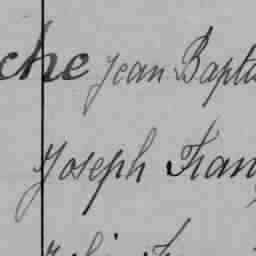 che Jean Bapti
Joseph Fran